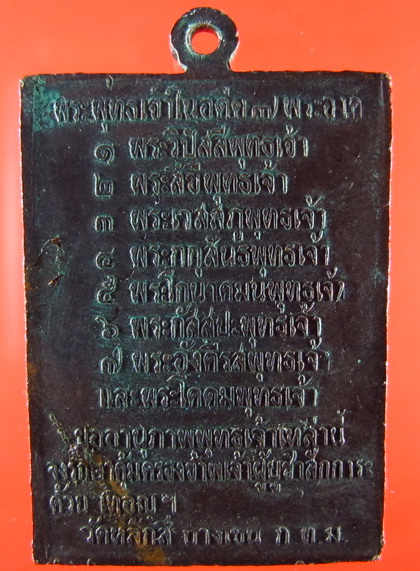 พระพุทธเจ้าในอดีต ๗ พระองค์
๑ พระวิปัสสีพุทธเจ้า
๒ พระสิขีพุทธเจ้า
๓ พระเวสสภูพุทธเจ้า
๔ พระกกุสันธพุทธเจ้า
๕ พระโกนาคมนพุทธเจ้า
๖ พระกัสสปะพุทธเจ้า
๗ พระอังคีรสพุทธเจ้า
และพระโคดมพุทธเจ้า
ขออานุภาพพุทธเจ้าเหล่านี้
จงรักษาคุ้มครองข้าพเจ้าผู้บูชาสักการะ
ด้วย เทอญฯ
วัดหลักสี่ บางเขน ก ท ม.